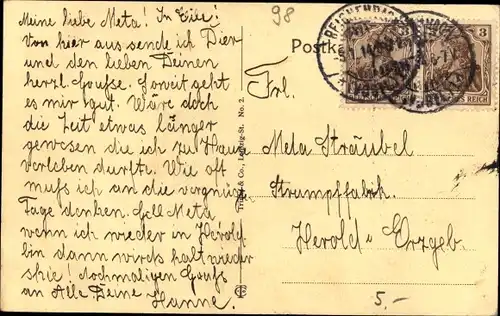 Meine liebe Meta! In Eile!
Von hier aus sende ich Dier
und den lieben Deinen
herzl. Grüsse. Soweit geht
es mir gut. Wäre doch
die Zeit etwas länger
gewesen die ich zu Hause
verleben durfte. Wie oft
muß ich an die vergnügten
Tage denken. Gell Meta
wenn ich wieder in Herold
bin dann wirds halt wieder
schie! Nochmaligen Gruß
an Alle Deine Hanne.
98
Postka
Frl.
Meta Sträubel
Strumpffabrik.
Herold i Erzgeb.
5.-
& Co., Leipzig-St. No. 2.
REICHENBACH
3
3
REICH